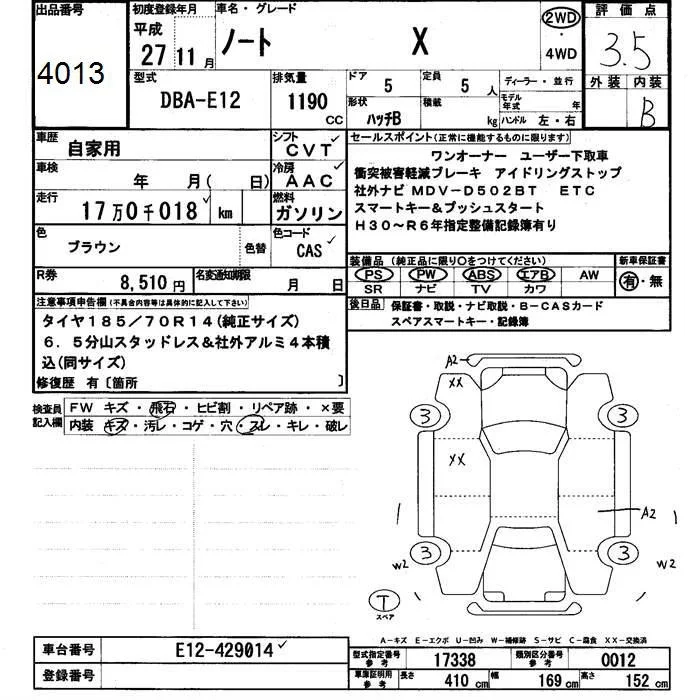 出品番号
4013
初度登録年月
平成
27 11 月
車名・グレード
ノート X
2WD
・
4WD
評価点
3.5
外装 内装
B
型式
DBA-E12
排気量
1190
CC
ドア 5
定員 5 人
形状 ハッチB
積載 kg
ディーラー・並行
モデル年式 年
ハンドル 左・右
車歴 自家用
シフト CVT
車検 年 月( 日)
冷房 AAC
走行 17万0千018 km
燃料 ガソリン
色 ブラウン
色替
色コード CAS
R券 8,510円
名変通知期限 月 日
セールスポイント(正常に機能するものに限ります)
ワンオーナー ユーザー下取車
衝突被害軽減ブレーキ アイドリングストップ
社外ナビ MDV-D502BT ETC
スマートキー&プッシュスタート
H30~R6年指定整備記録簿有り
装備品(純正品に限り○をつけてください)
PS PW ABS エアB AW
SR ナビ TV カワ
新車保証書
有・無
後日品 保証書・取説・ナビ取説・B-CASカード
スペアスマートキー・記録簿
注意事項申告欄(不具合内容等は具体的に記入して下さい)
タイヤ185/70R14(純正サイズ)
6.5分山スタッドレス&社外アルミ4本積
込(同サイズ)
修復歴 有〔箇所 〕
検査員記入欄
FW キズ・飛石・ヒビ割・リペア跡・×要
内装 キズ・汚レ・コゲ・穴・スレ・キレ・破レ
A2
XX
3 3
XX
A2
3 3
W2 W2
T
スペア
A-キズ E-エクボ U-凹み W-補修跡 S-サビ C-腐食 XX-交換済
車台番号 E12-429014
登録番号
型式指定番号 参考 17338
類別区分番号 参考 0012
車庫証明用 参考 長さ 410 cm 幅 169 cm 高さ 152 cm